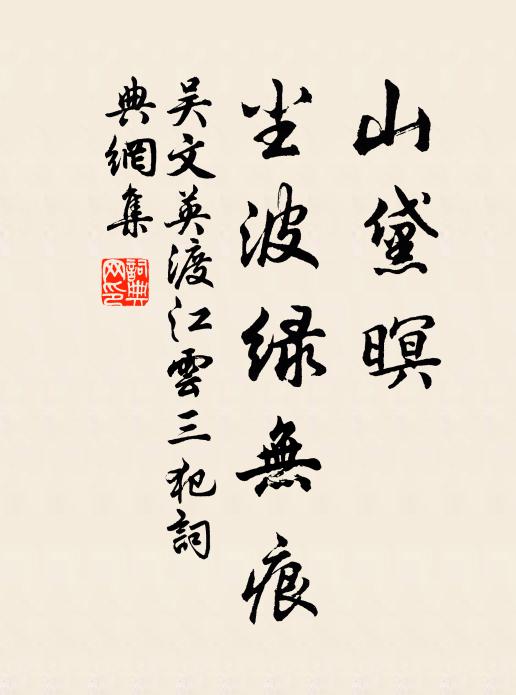 山黛暝
尘波緑無痕
吴文英渡江雲三犯詞
典網集
詞典
网印